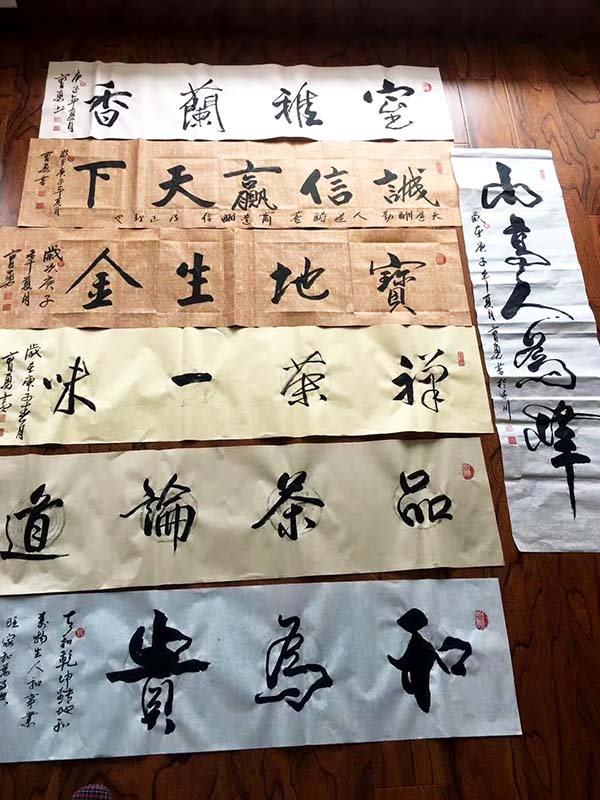 室雅蘭香
庚子年夏月
寶勇書
誠信贏天下
天道酬勤 人道酬善 商道酬信 乃正理也
歲在庚子年夏月
寶勇書
寶地生金
歲次庚子
年夏月
寶勇
禪茶一味
歲在庚子夏月
寶勇書
品茶論道
和為貴
天和乾坤轉地和
萬物生人和事業
旺家和萬事興
山高人為峰
歲在庚子年夏月寶勇書於